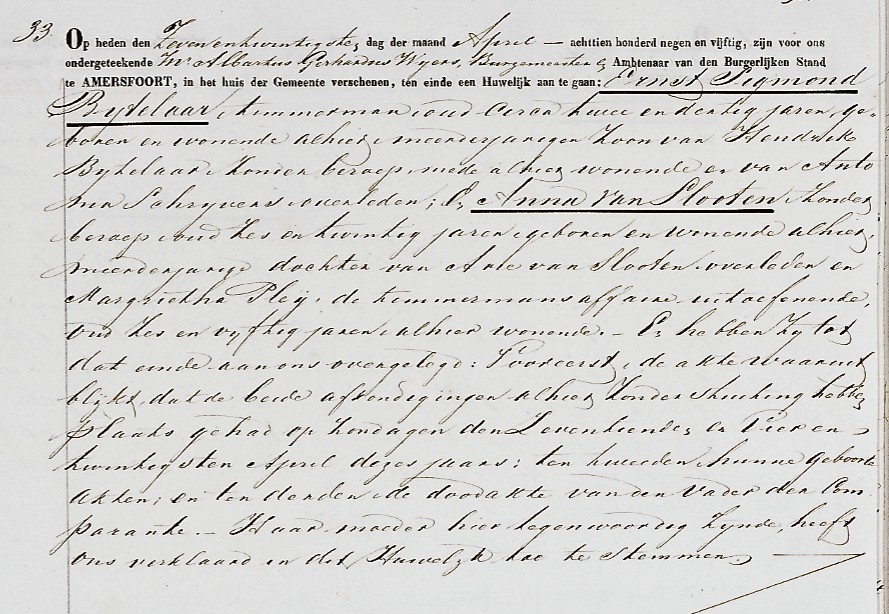 33
Op heden den Zevenentwintigste dag der maand April — achttien honderd negen en vijftig, zijn voor ons
ondergeteekende Mr Albartus Gerhardus Wijers, Burgemeester & Ambtenaar van den Burgerlijken Stand
te AMERSFOORT, in het huis der Gemeente verschenen, ten einde een Huwelijk aan te gaan: Ernst Sigmond
Bijtelaar, timmerman, oud circa twee en dertig jaren, ge-
boren en wonende alhier, meerderjarigen Zoon van Hendrik
Bijtelaar, zonder beroep, mede alhier wonende en van Anto
nia Schrijvers, overleden; & Anna van Slooten, zonder
beroep, oud zes en twintig jaren, geboren en wonende alhier,
meerderjarige dochter van Arie van Slooten, overleden en
Margrietha Pleij, de timmermans affaire uitoefenende,
oud zes en vijftig jaren, alhier wonende. — En hebben zij tot
dat einde aan ons overgelegd: Vooreerst, de akte waaruit
blijkt, dat de beide afkondigingen alhier zonder stuiting hebben
plaats gehad op zondagen den Zeventiende en Vier en
twintigsten April dezes jaars; ten tweeden, hunne geboorte
akten; en ten derden, de doodakte van den vader der Com
parante. — Haar moeder hier tegenwoordig zijnde, heeft
ons verklaard in dit Huwelijk toe te stemmen.